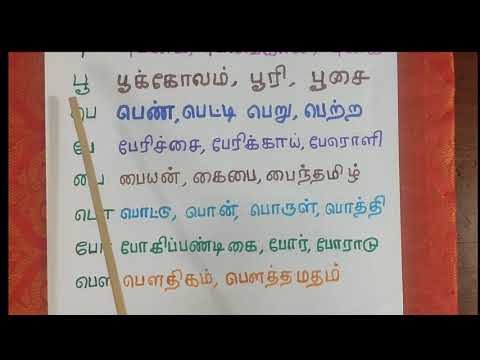 பூ பூக்கோலம், பூரி, பூசை
பெ பெண், பெட்டி பெறு, பெற்ற
பே பேரிச்சை, பேரிக்காய், பேரொளி
பை பையன், கைபை, பைந்தமிழ்
பொ பொட்டு, பொன், பொருள், பொத்தி
போ போகிப்பண்டிகை, போர், போராடு
பௌ பௌதிகம், பௌத்தமதம்